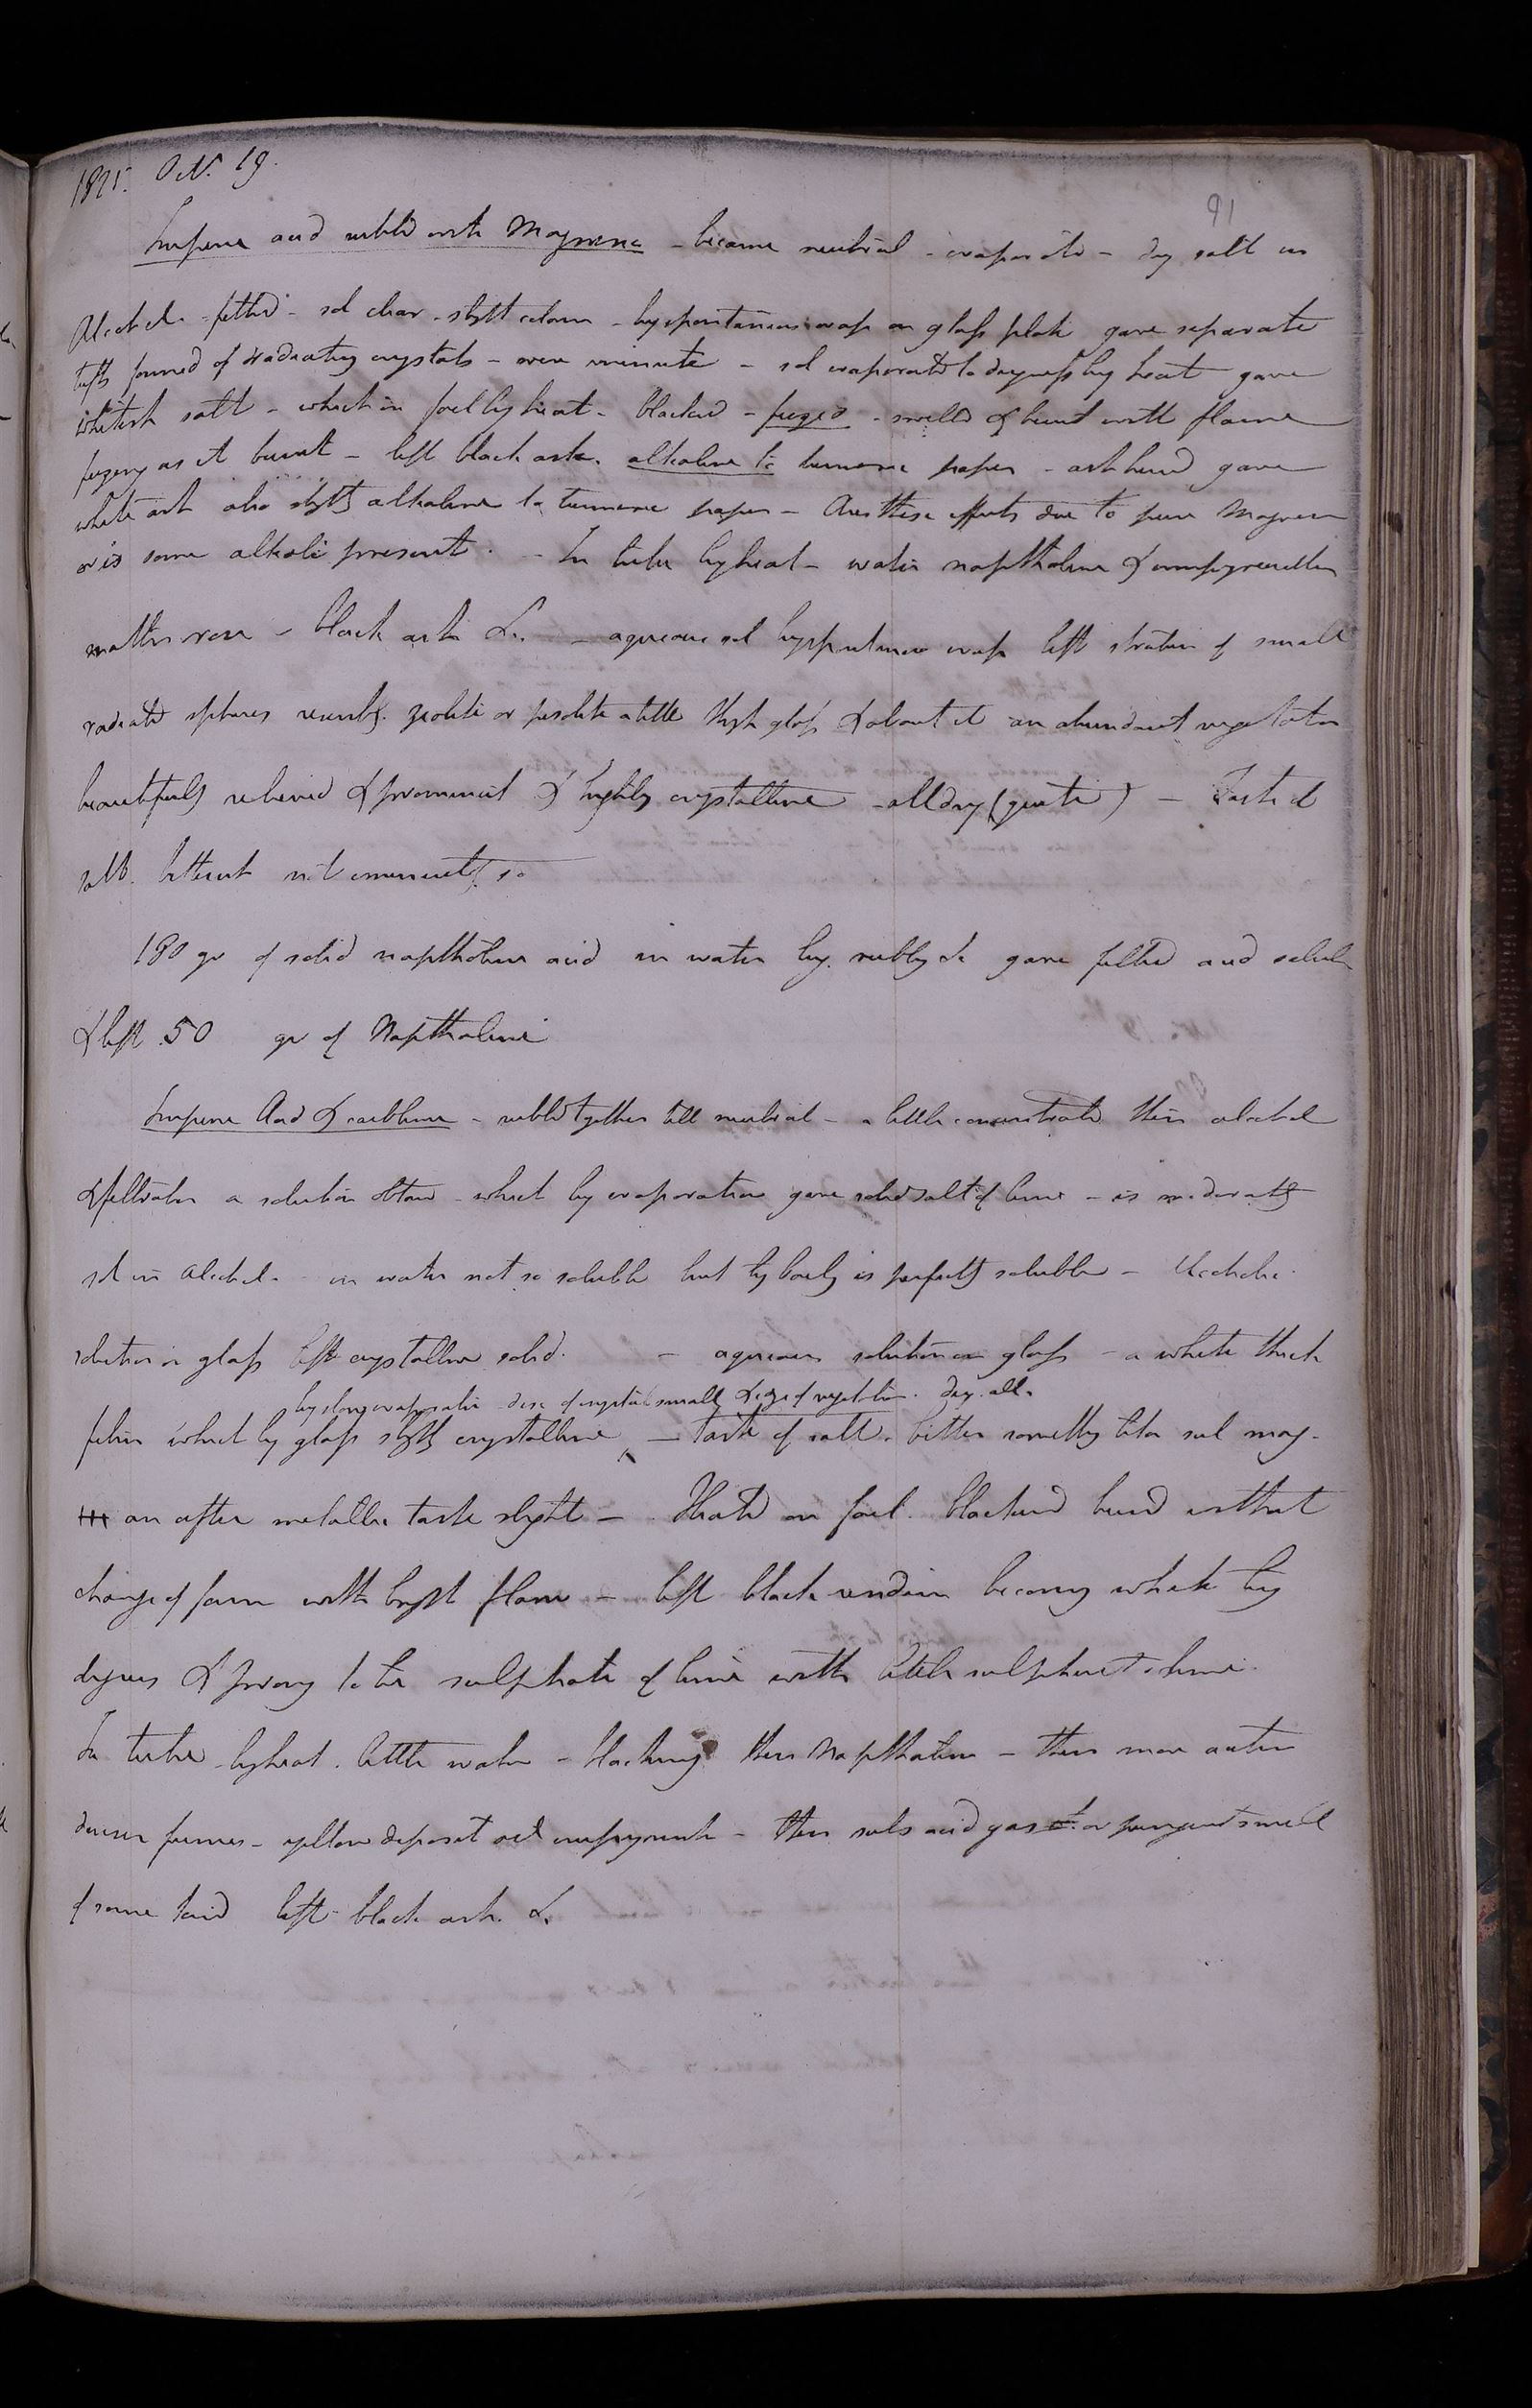 1825. Oct. 19.
91
Impure acid rubbd with Magnesia - became neutral - evaporated - dry salt in
Alcohol - filtd - sol clear - slight colour - by spontaneous evap on glass plate gave separate
tufts formed of radiating crystals - were minute - sol evaporated to dryness by heat gave
whitish salt - which on foil by heat - blackend - fuzed - swelld & burnt with flame
fuzing as it burnt - left black ash. alkaline to turmeric paper - ash heated gave
white ash also slightly alkaline to turmeric paper - Are these effects due to pure Magnesia
or is some alkali present. - In tube by heat - water napthaline & empyreumatic
matter rose - black ash &c. - aqueous sol by spontaneous evap left stratum of small
radiated spheres resembg. zeolite or pisolite a little thro glass & about it an abundant vegetation
beautifully relieved & prominent & highly crystalline - all dry (quite) - Taste of
salt. bitterish not eminently so
180 gr of solid napthaline acid in water by rubbg &c gave filtd acid solutn
& left 50 gr of Napthaline
Impure Acid & carb lime - rubbd together till neutral - a little concentrated then alcohol
& filtration a solution obtaind - which by evaporation gave solid salt of lime - is moderately
sol in alcohol - in water not so soluble but by boilg is perfectly soluble - Alcoholic
solution on glass left crystalline solid. - aqueous solution on glass - a white thick
by slow evaporatn disc of crystals small & edge of vegetation. dry. all.
film which by glass slightly crystalline - taste of salt - bitter something like sul mag -
an after metallic taste slight - Heated on foil. blackend burnd without
change of form with bright flame - left black residuum becoming white by
degrees & proving to be sulphate of lime with little sulphuret lime.
In tube by heat. little water - blackening then Napthaline - then more water
denser fumes - yellow deposit and empyreumatic - then sulps acid gas or pungent smell
of some kind left black ash. &c